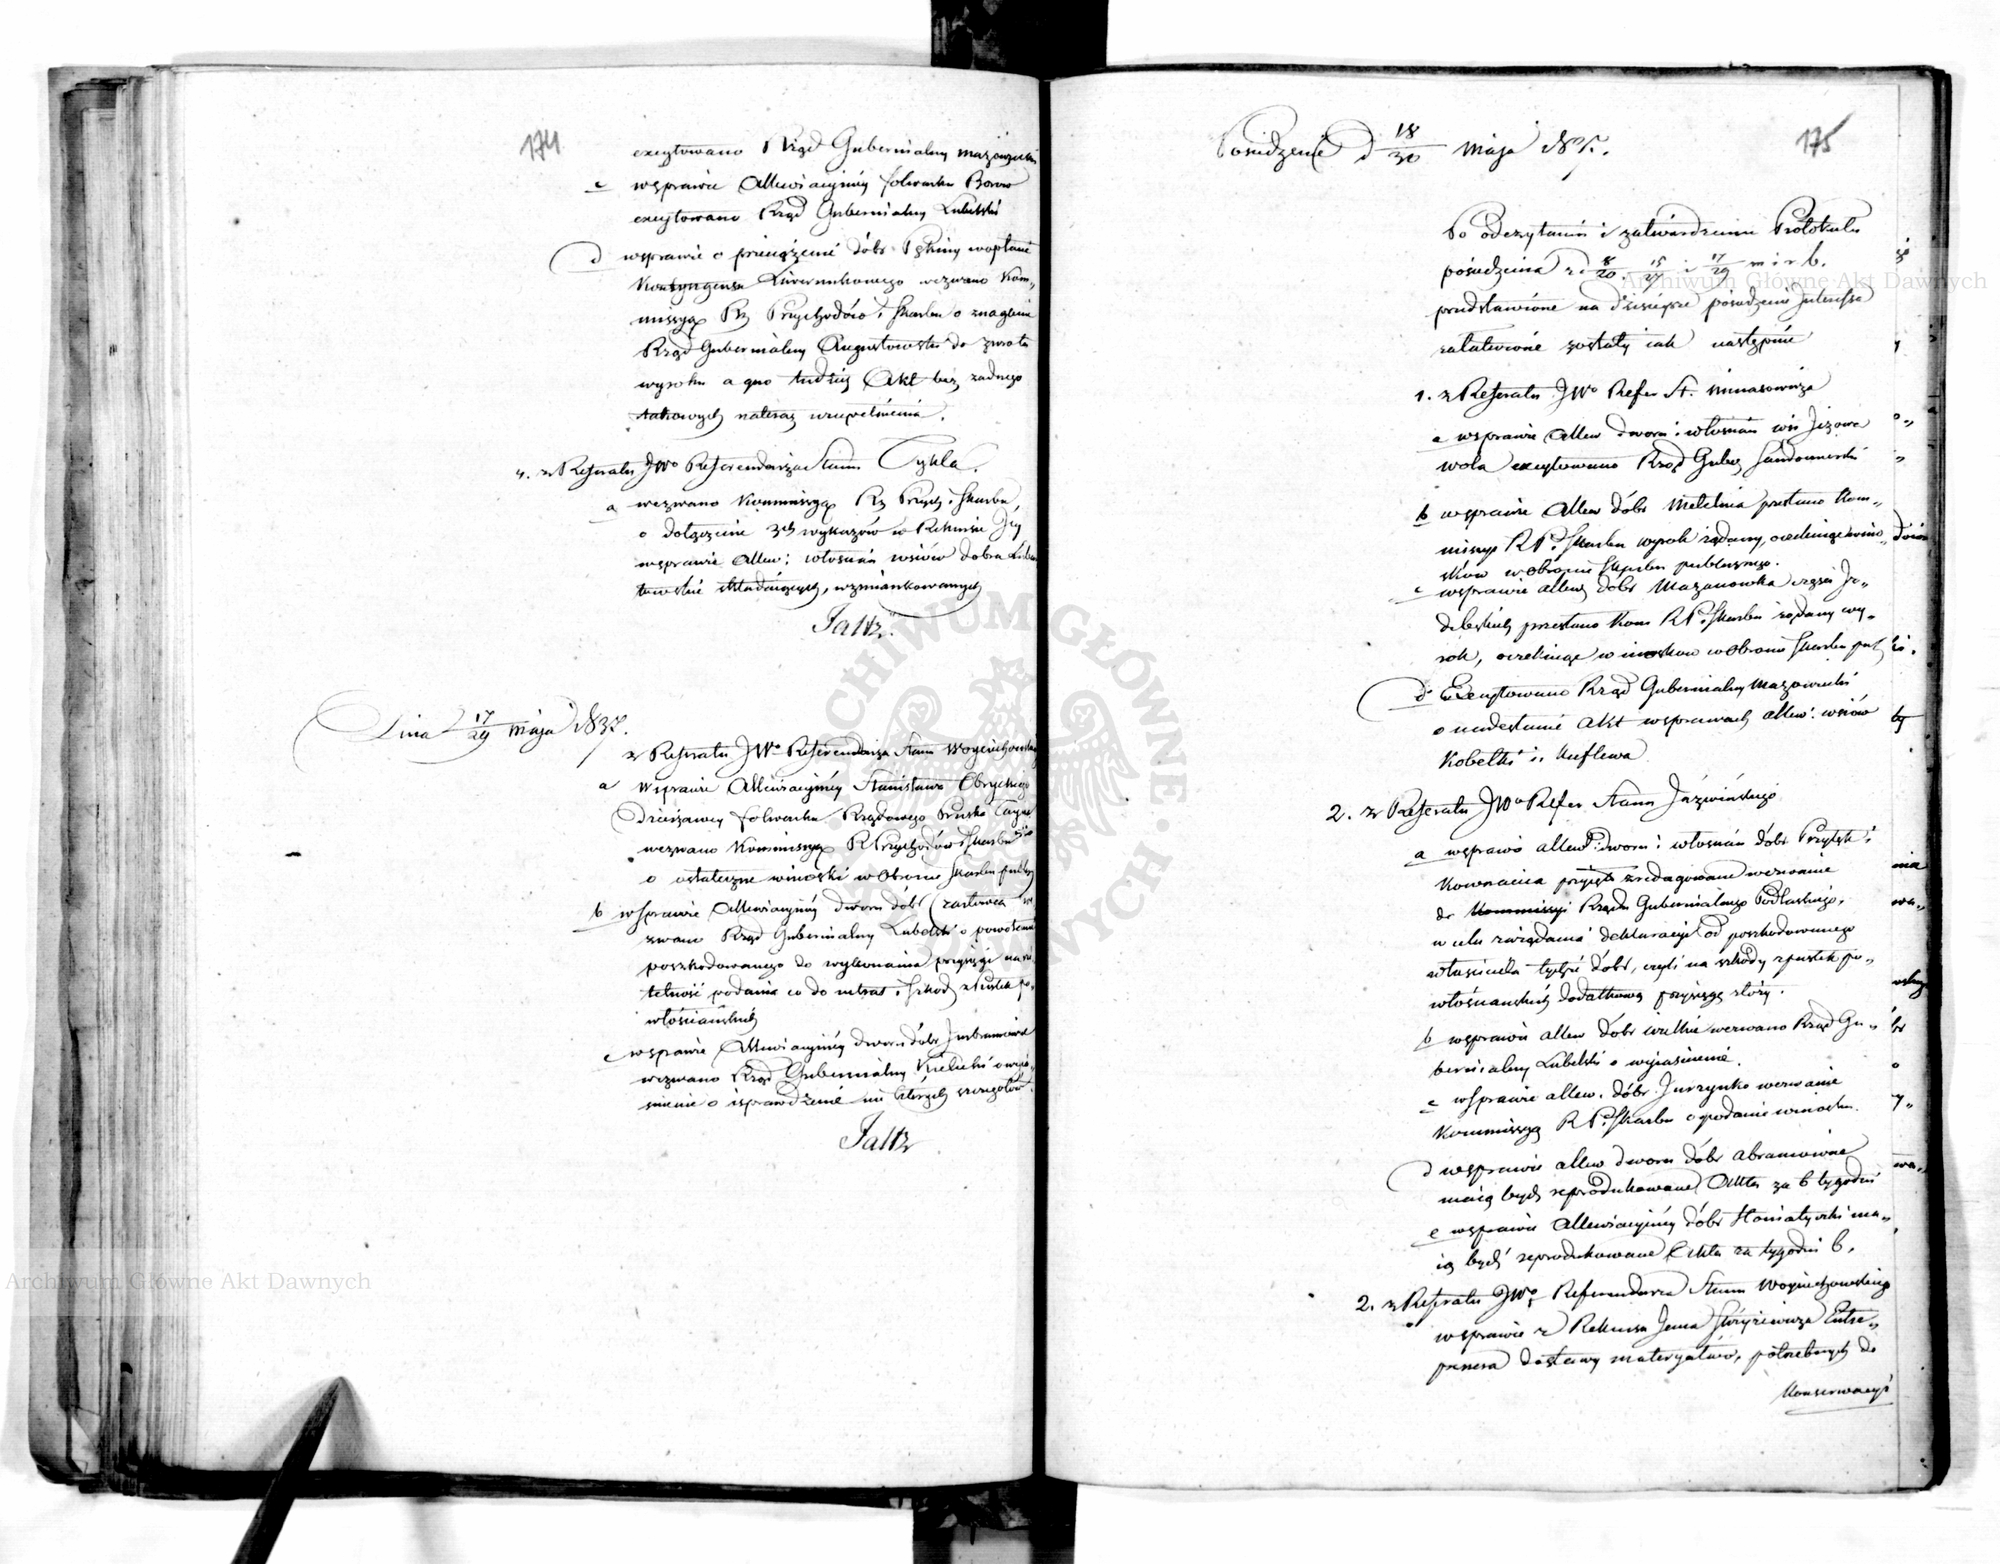 174
excytowano Rząd Gubernialny mazowiecki
c wsprawie Allewiacyjnéy folwarku Borow
excytowano Rząd Gubernialny Lubelski
d wsprawie o przeciążenie dóbr wopłacie
Kontyngensu Liwerunkowego wezwano Kom„
missyą Rz Przychodów i Skarbu o znaglenie
Rząd Gubernialny Augustowski do zwrotu
wyroku a quo tudzież Akt bez żadnego
takowych nateraz uzupełnienia.
4. z Referatu JWo Referendarza Stanu Cykla.
a wezwano Kommissyą Rz Przych i Skarbu,
o dołączenie wykazów w Rekursie Jéy
wsprawie Allew: włościan wsiów dobra
składających, wzmiankowanych
Faltz.
Dnia 17/29 maja 1837.
z Referatu JWo Referendarza Stanu Woyciechowskiego
a Wsprawie Allewiacyjnéy Stanisława
Dzierżawcy folwarku Rządowego
wezwano Kommissyą R Przychodów i Skarbu
o ostateczne wnioski w Obronie Skarbu publ
b wsprawie Allewiacyjnéy dworu dóbr
zwano Rząd Gubernialny Lubelski o powołanie
poszkodowanego do wykonania przysięgi na rze
telność podania co do utrat i szkod z Pustek po„
włościańskich
c wsprawie Allewiacyjnéy dworu dóbr
wezwano Rząd Gubernialny Kielecki o
śnienie o sprawdzenie niektórych szczegołów.
Faltz
175
Posiedzenie d 18/30 maja 1837.
Po odczytaniu i zatwierdzeniu Protokułu
posiedzenia z d 8/20, 15/27 i 17/29 m i r b.
przedstawione na dzisiejsze posiedzenie Interessa
załatwione zostały jak następnie
1. z Referatu JWo Refer St. Minasowicza
a wsprawie Allew dworu i włościan wsi
wola excytowano Rząd Guber Sandomirski
b wsprawie Allew dóbr Mełelna przesłano Kom„
missyi R P. i Skarbu wyrok żądany, oczekując wnio„
sków w obronie Skarbu publicznego.
c wsprawie allew dóbr Mazanowka części
przesłano Kom R P. i Skarbu żądany wy„
rok, oczekując wniosków w obronie Skarbu publ
d Excytowano Rząd Gubernialny Mazowiecki
o nadesłanie Akt wsprawach allew: wsiów
Kobelki i Kuflewa
2. z Referatu JWo Refer Stanu Jaźwińskiego
a wsprawie allew: dworu i włościan dóbr Przyłęk i
Kownacica przyjęto zredagowane wezwanie
do Kommissyi Rządu Gubernialnego Podlaskiego,
w celu zażądania deklaracyi od poszkodowanego
właściciela tychże dóbr, czyli na szkody z pustek po„
włościańskich dodatkową przysięgę złoży.
b wsprawie allew dóbr wielkie wezwano Rząd Gu„
bernialny Lubelski o wyjaśnienie.
c wsprawie allew. dóbr Jurzynko wezwanie
Kommissyą R P. i Skarbu o podanie wniosku.
d wsprawie allew dworu dóbr Abramowice
mają bydź reprodukowane Akta za 6 tygodni
e wsprawie Allewiacyjnéy dóbr Honiatyczki ma„
ią bydź reprodukowane Akta za tygodni 6.
2. z Referatu JWo Referendarza Stanu Woyciechowskiego
wsprawie z Rekursu Jana Entre„
prenera dostawy materyałów, potrzebnych do
Konserwacyi
Archiwum Główne Akt Dawnych
Archiwum Główne Akt Dawnych
ARCHIWUM GŁÓWNE AKT DAWNYCH